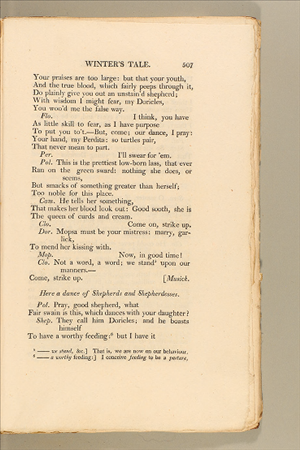 WINTER'S TALE. 507
Your praises are too large: but that your youth,
And the true blood, which fairly peeps through it,
Do plainly give you out an unstain'd shepherd;
With wisdom I might fear, my Doricles,
You woo'd me the false way.
Flo. I think, you have
As little skill to fear, as I have purpose
To put you to't.—But, come; our dance, I pray:
Your hand, my Perdita: so turtles pair,
That never mean to part.
Per. I'll swear for 'em.
Pol. This is the prettiest low-born lass, that ever
Ran on the green sward: nothing she does, or
seems,
But smacks of something greater than herself;
Too noble for this place.
Cam. He tells her something,
That makes her blood look out: Good sooth, she is
The queen of curds and cream.
Clo. Come on, strike up.
Dor. Mopsa must be your mistress: marry, gar-
lick,
To mend her kissing with.
Mop. Now, in good time!
Clo. Not a word, a word; we stand⁵ upon our
manners.—
Come, strike up. [Musick.
Here a dance of Shepherds and Shepherdesses.
Pol. Pray, good shepherd, what
Fair swain is this, which dances with your daughter?
Shep. They call him Doricles; and he boasts
himself
To have a worthy feeding:⁶ but I have it
⁵ —— we stand, &c.] That is, we are now on our behaviour.
⁶ —— a worthy feeding:] I conceive feeding to be a pasture,